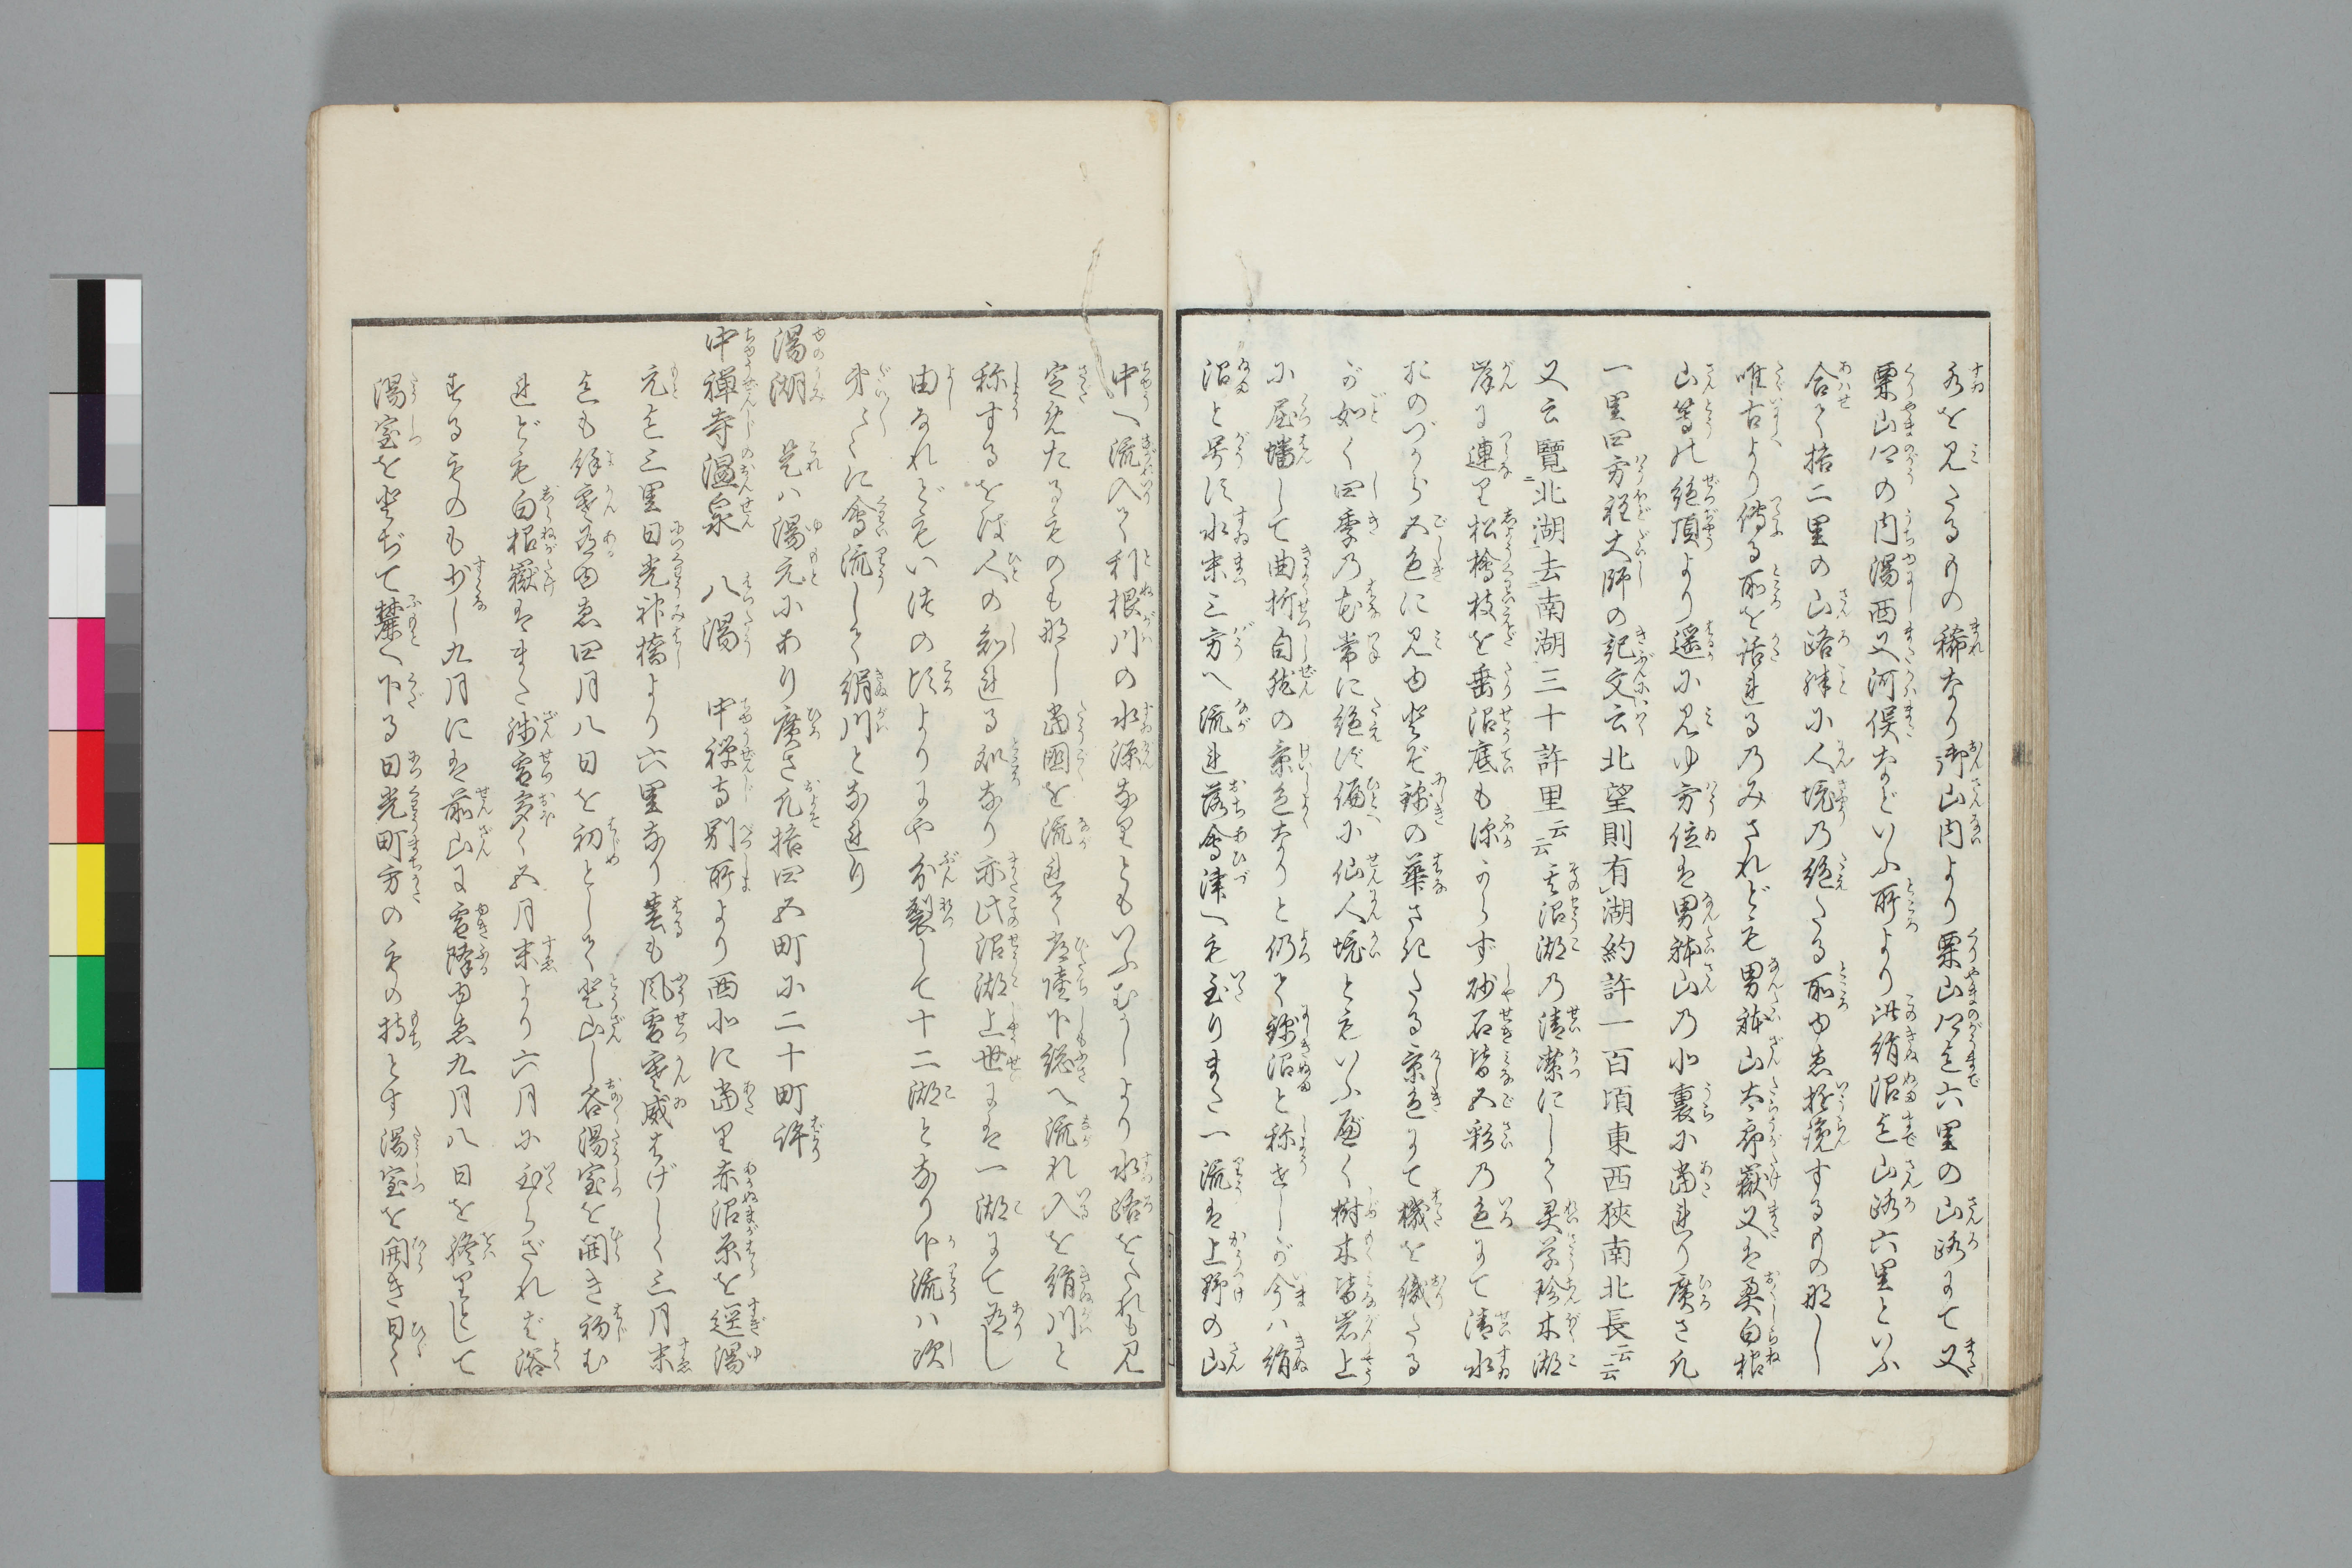 水を見たるものは稀なり御山内より栗山郷迄六里の山路にて又
栗山郷の内湯西又河俣などいふ所より此絹沼迄山路六里といふ
合て拾二里の山路殊に人境の絶たる所ゆゑ遊覧するもの那し
唯古より傳る所を話せるのみされども男躰山太郎嶽又は奥白根
山等の絶頂より遥に見ゆ方位は男躰山の北裏に當れり廣さ凡
一里四方程大師の記文云北望則有湖約許一百頃東西狹南北長云云
又云覽北湖去南湖三十許里云云其沼湖の清潔にして異草珍木湖
岸に連り松檜枝を垂沼底も深からず砂石皆五彩の色にて清水
おのづから五色に見ゆ
が如く四季の花常に絶ず偏に仙人境ともいふべく樹木皆岩上
に屈蟠して曲折自然の景色なりと仍て錦沼と称せしが今ハ絹
沼と号す水末三方へ流れ落會津へも至りまた一流は上野の山
中へ流入て利根川の水源なりともいふむかしより水路をたれも見
定めたるものも那し當國を流れて常陸下総へ流れ入を絹川と
称するを以人の知れる処なり亦此沼湖上世には一湖にて有し
由なれどもいつの比よりにや分裂して十二湖となり下流ハ次
第々々に會流して絹川となれり
湯湖　是ハ湯元にあり廣さ凡拾四五町に二十町許
中禅寺温泉　八湯　中禅寺別所より西北に當り赤沼原を經湯
元迄三里日光神橋より六里なり春も風雪寒威はげしく三月末
迄も餘寒有ゆゑ四月八日を初として登山し各湯室を開き初む
れども白根嶽はまた残雪多く五月末より六月に至らざれば浴
するものも少し九月には前山に雪降ゆゑ九月八日を終りとして
湯室を閉ぢて麓へ下る日光町方の者の持とす湯室を開き日々